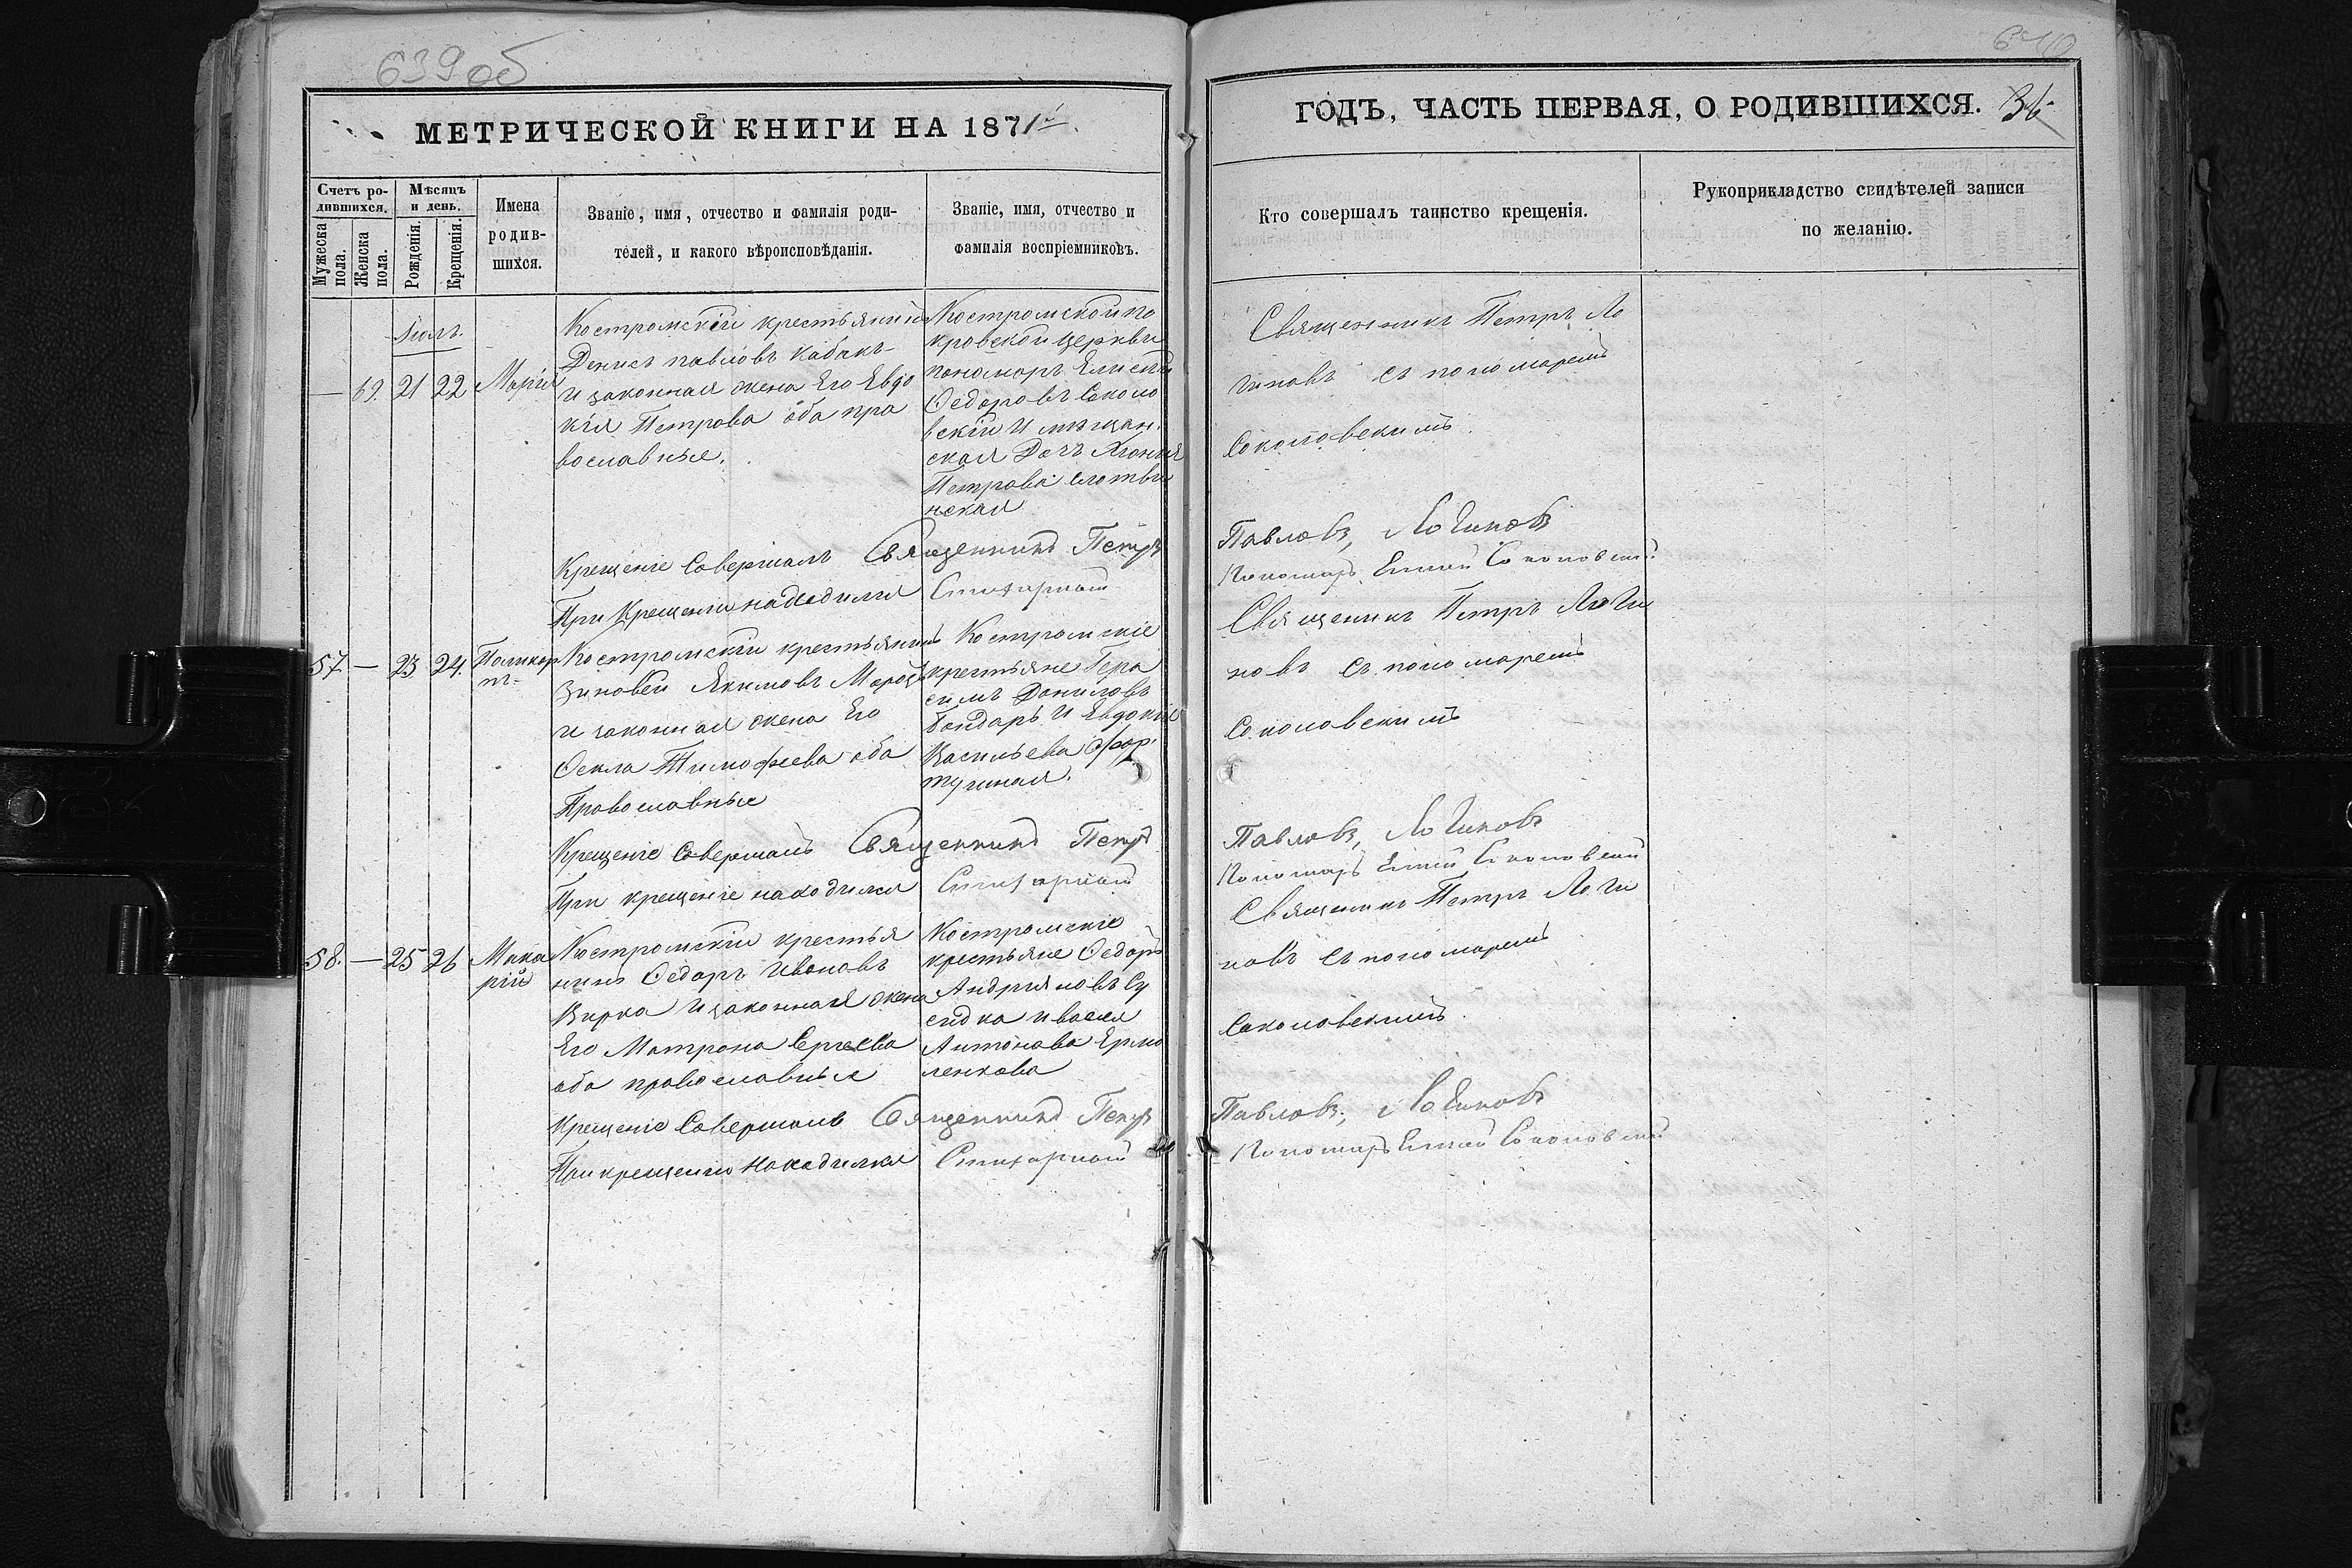 639 об
МЕТРИЧЕСКОЙ КНИГИ НА 1871й
Счетъ ро-
дившихся.
Мужеска пола.
Женска пола.
Мѣсяцъ
и день.
Рожденія.
Крещенія.
Имена
родив-
шихся.
Званіе, имя, отчество и фамилія роди-
телей, и какого вѣроисповѣданія.
Званіе, имя, отчество и
фамилія воспріемниковъ.
Іюль
— 69. 21 22 Марія
Костромскій крестьянинъ
Денисъ павловъ Кабакъ
и законная жена Его Евдо
кія Петрова оба пра
вославные.
Костромской по
кровской Церкви
пономарь Елисей
Ѳедоровъ Соколо
вскій И мѣщан.
ская Дочь
Петрова
нская
Крещеніе Совершалъ Священникъ Петръ
При Крещеніи находился
57 — 23 24. Поликар
пъ
Костромскій крестьянинъ
Зиновей Якимовъ Мороzъ
и законная жена Его
Ѳекла Тимофеева оба
Православные
Костромскіе
крестьяне Гера
симъ Даниловъ
Бондарь И Евдокія
Васильева Фор
тушная.
Крещеніе Совершалъ Священникъ Петръ
При крещеніе находился
58. — 25 26 Мака
рій
Костромскій крестья
нинъ Ѳедоръ Ивановъ
Вирва И законная жена
Его Матрона Сергеева
оба православные
Костромскіе
крестьяне Ѳедоръ
Андрияновъ Су
сидка
Антонова Ермо
ленкова
Крещеніе Совершалъ Священникъ Петръ
При крещеніи Находился
640
ГОДЪ, ЧАСТЬ ПЕРВАЯ, О РОДИВШИХСЯ. 36
Кто совершалъ таинство крещенія.
Рукоприкладство свидѣтелей записи
по желанію.
Священникъ Петръ Ло
гиновъ съ пономаремъ
Соколовскимъ
Павловъ, Логиновъ
Пономарь Елисей Соколовский
Священикъ Петръ Логи
новъ съ пономаремъ
Соколовскимъ
Павловъ, Логиновъ
Пономарь Елисей Соколовский
Священикъ Петръ Логи
новъ съ пономаремъ
Соколовскимъ
Павловъ, Логиновъ
Пономарь Елисей Соколовский